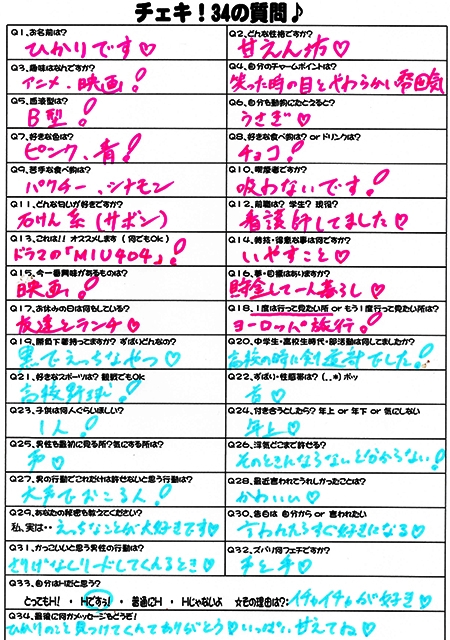 チェキ！34の質問♪
Q1、お名前は？
ひかりです♡
Q2、どんな性格ですか？
甘えん坊♡
Q3、趣味はなんですか？
アニメ、映画！
Q4、自分のチャームポイントは？
笑った時の目とやわらかい雰囲気
Q5、血液型は？
B型！
Q6、自分を動物にたとえると？
うさぎ♡
Q7、好きな色は？
ピンク、青！
Q8、好きな食べ物は？ or ドリンクは？
チョコ！
Q9、苦手な食べ物は？
パクチー、シナモン
Q10、喫煙者ですか？
吸わないです！
Q11、どんな匂いが好きですか？
石けん系（サボン）
Q12、前職は？ 学生？ 現役？
看護師してました♡
Q13、これは!! オススメします（何でもOk）
ドラマの「MIU404」！
Q14、特技・得意な事は何ですか？
いやすこと♡
Q15、今一番興味があるものは？
映画！
Q16、夢・目標はありますか？
貯金して一人暮らし♡
Q17、お休みの日は何もしている？
友達とランチ♡
Q18、1度は行って見たい所 or もう1度行って見たい所は？
ヨーロッパ旅行！
Q19、勝負下着持ってますか？ ずばりどんなの？
黒でえっちなやつ♡
Q20、中学生・高校生時代・部活動は何してましたか？
高校の時に創造部でした！
Q21、好きなスポーツは？ 観戦でもOk
高校野球！
Q22、ずばり・性感帯は？（..*）ポッ
首♡
Q23、子供は何人ぐらいほしい？
1人！
Q24、付き合うとしたら？ 年上 or 年下 or 気にしない
年上♡
Q25、男性を最初に見る所？気にする所は？
声♡
Q26、浮気どこまで許せる？
そのときにならないと分からない！
Q27、男の行動でこれだけは許せないと思う行動は？
大声でおこる人！
Q28、最近言われてうれしかったことは？
かわいい♡
Q29、あなたの秘密を教えてください？
私、実は・・えっちなことが大好きです♡
Q30、告白は 自分から or 言われたい
言われたらすぐ好きになる♡
Q31、かっこいいと思う男性の行動は？
さりげなくリードしてくれるとき♡
Q32、ズバリ何フェチですか？
手と声♡
Q33、自分はHだと思う？
とってもH！ ・ Hですぅ！ ・ 普通にH ・ Hじゃないよ ☆その理由は？：イチャイチャが好き♡
Q34、最後に何かメッセージをどうぞ！
ひかりのこと見つけてくれてありがとう♡いっぱい甘えてね♡